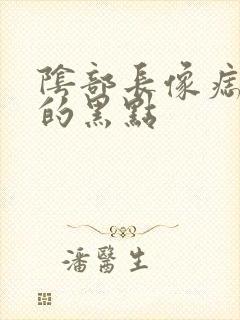 陰部長像痣
的黑點
潘醫生